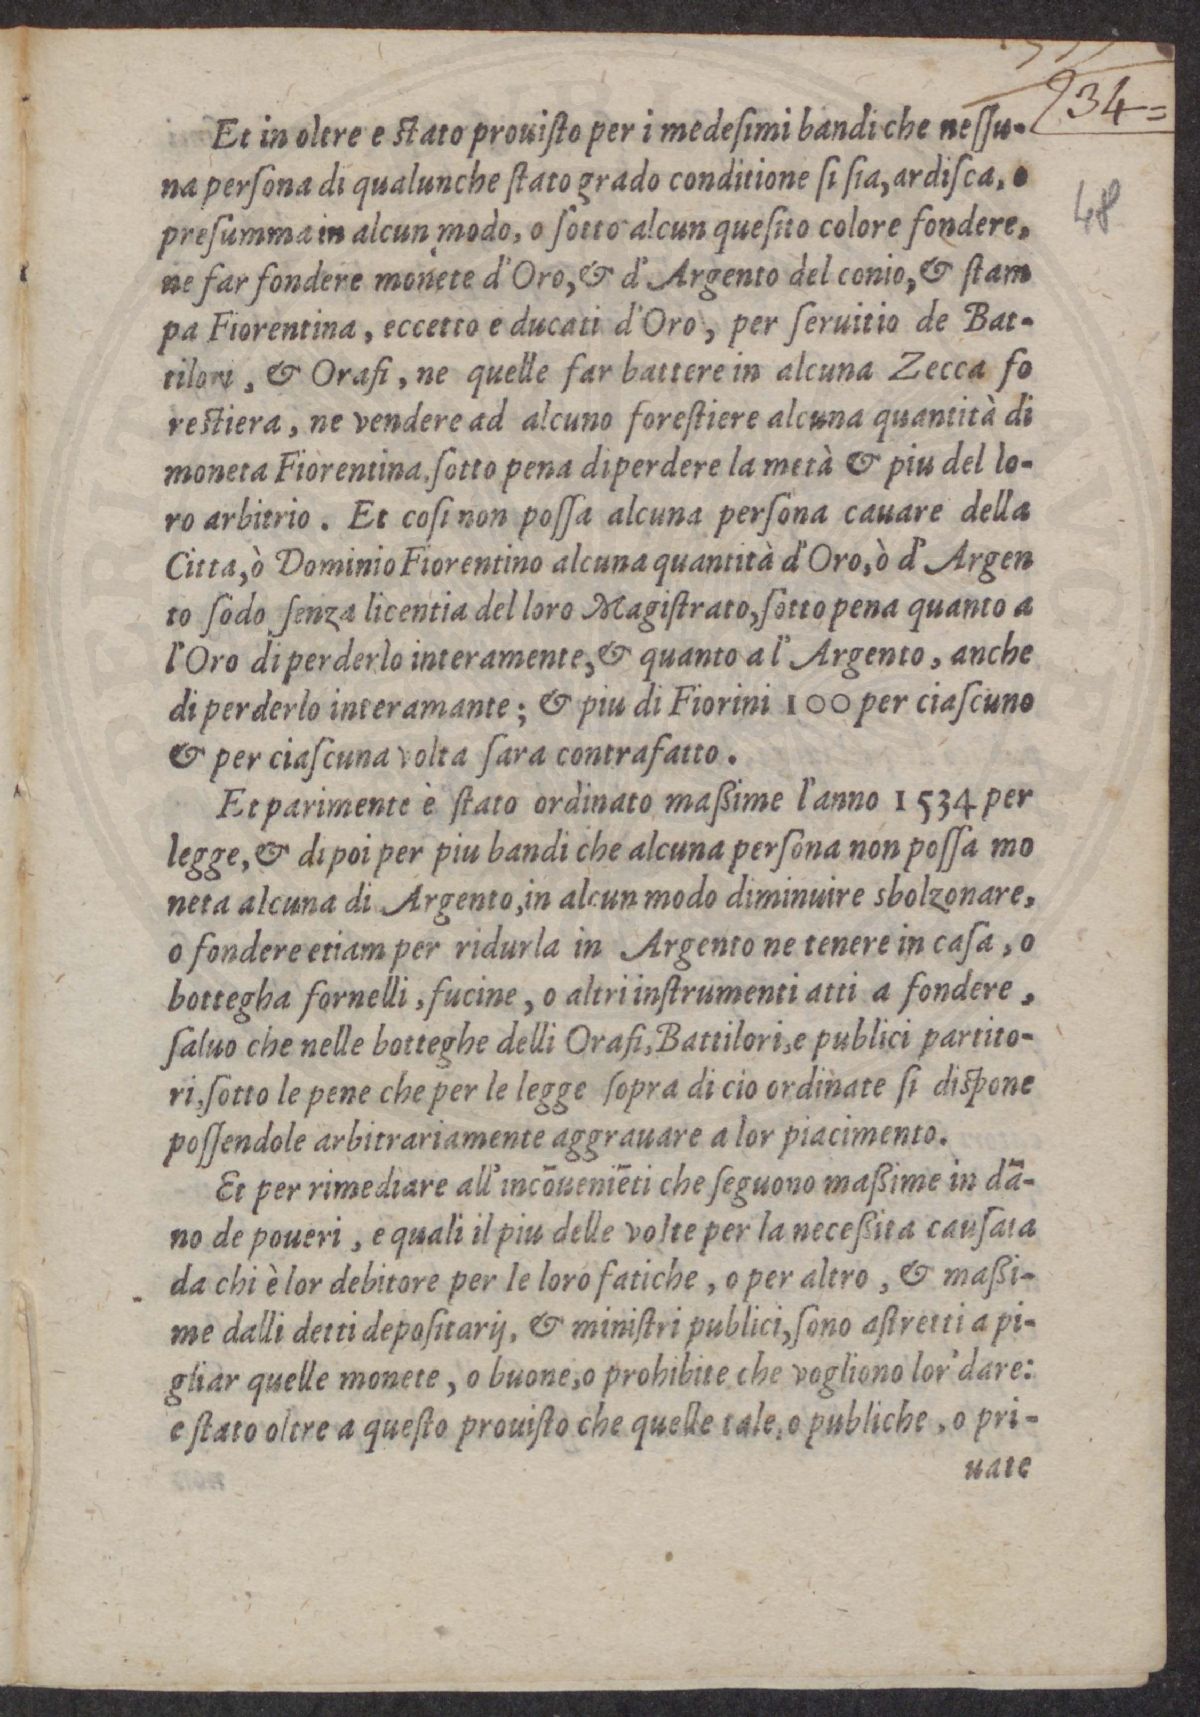 34=
48
Et in oltre e ſtato prouiſto per i medeſimi bandi che neſſu-
na perſona di qualunche ſtato grado conditione ſi ſia, ardiſca, o
preſumma in alcun modo, o ſotto alcun queſito colore fondere,
ne far fondere monete d'Oro, & d'Argento del conio, & ſtam
pa Fiorentina, eccetto e ducati d'Oro, per ſeruitio de Bat-
tilori, & Orafi, ne quelle far battere in alcuna Zecca fo
reſtiera, ne vendere ad alcuno foreſtiere alcuna quantità di
moneta Fiorentina, ſotto pena di perdere la metà & piu del lo-
ro arbitrio. Et coſi non poſſa alcuna perſona cauare della
Citta, ò Dominio Fiorentino alcuna quantità d'Oro, ò d'Argen
to ſodo ſenza licentia del loro Magiſtrato, ſotto pena quanto a
l'Oro di perderlo interamente, & quanto a l'Argento, anche
di perderlo interamante; & piu di Fiorini 100 per ciaſcuno
& per ciaſcuna volta ſara contrafatto.
Et parimente è ſtato ordinato maßime l'anno 1534 per
legge, & di poi per piu bandi che alcuna perſona non poſſa mo
neta alcuna di Argento, in alcun modo diminuire sbolzonare,
o fondere etiam per ridurla in Argento ne tenere in caſa, o
bottegha fornelli, fucine, o altri inſtrumenti atti a fondere,
ſaluo che nelle botteghe delli Orafi, Battilori, e publici partito-
ri, ſotto le pene che per le legge ſopra di cio ordinate ſi diſpone
poſſendole arbitrariamente aggrauare a lor piacimento.
Et per rimediare all'incōueniēti che ſeguono maßime in dā-
no de poueri, e quali il piu delle volte per la neceßita cauſata
da chi è lor debitore per le loro fatiche, o per altro, & maßi-
me dalli detti depoſitarij, & miniſtri publici, ſono aſtretti a pi-
gliar quelle monete, o buone, o prohibite che vogliono lor'dare:
e ſtato oltre a queſto prouiſto che quelle tale, o publiche, o pri-
uate